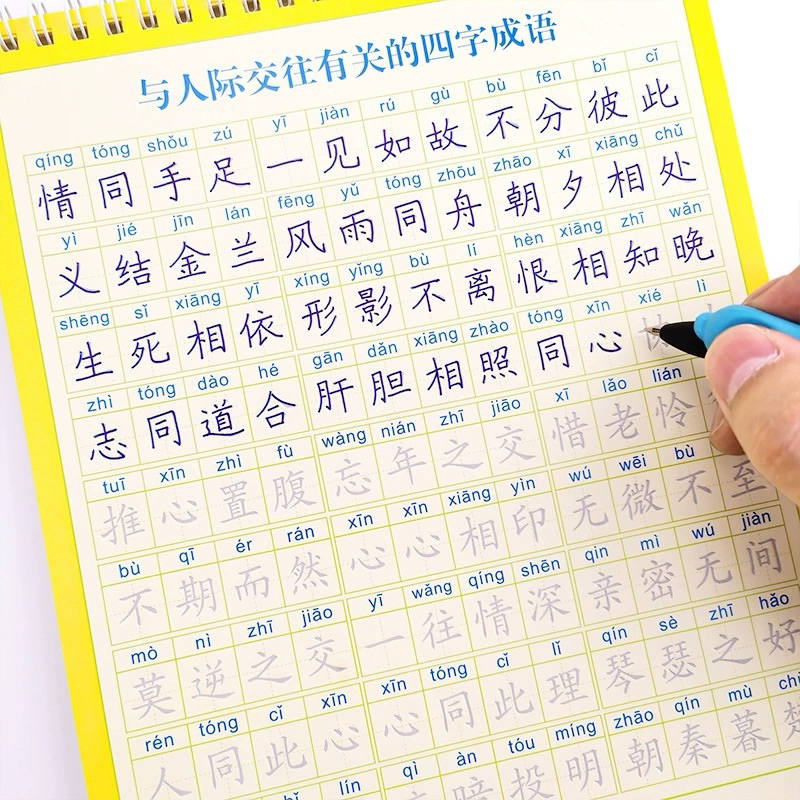 与人际交往有关的四字成语
qíng tóng shǒu zú yī jiàn rú gù bù fēn bǐ cǐ
情同手足 一见如故 不分彼此
yì jié jīn lán fēng yǔ tóng zhōu zhāo xī xiāng chǔ
义结金兰 风雨同舟 朝夕相处
shēng sǐ xiāng yī xíng yǐng bù lí hèn xiāng zhī wǎn
生死相依 形影不离 恨相知晚
zhì tóng dào hé gān dǎn xiāng zhào tóng xīn xié lì
志同道合 肝胆相照 同心协
tuī xīn zhì fù wàng nián zhī jiāo xī lǎo lián
推心置腹 忘年之交 惜老怜
bù qī ér rán xīn xīn xiāng yìn wú wēi bù
不期而然 心心相印 无微不至
mò nì zhī jiāo yī wǎng qíng shēn qin mì wú jiàn
莫逆之交 一往情深 亲密无间
rén tóng cǐ xīn xīn tóng cǐ lǐ qín sè zhī hǎo
人同此心 心同此理 琴瑟之好
lín qì àn tóu míng zhāo qín mù
暗投明 朝秦暮楚